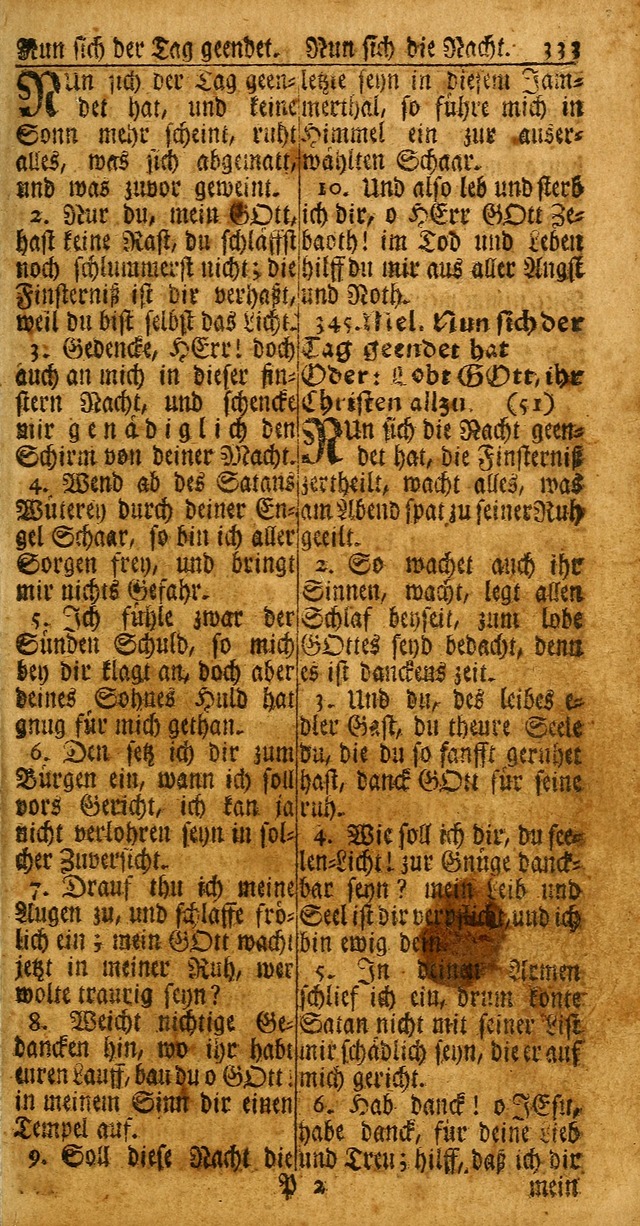 Nun sich der Tag geendet. Nun sich die Nacht. 333
NUn sich der Tag geen-
det hat, und keine
Sonn mehr scheint, ruht
alles, was sich abgematt,
und was zuvor geweint.
2. Nur du, mein GOtt,
hast keine Rast, du schläffst
noch schlummerst nicht; die
Finsterniß ist dir verhaßt,
weil du bist selbst das Licht.
3. Gedencke, HErr! doch
auch an mich in dieser fin-
stern Nacht, und schencke
mir genädiglich den
Schirm von deiner Macht.
4. Wend ab des Satans
Wüterey durch deiner En-
gel Schaar, so bin ich aller
Sorgen frey, und bringt
mir nichts Gefahr.
5. Ich fühle zwar der
Sünden Schuld, so mich
bey dir klagt an, doch aber
deines Sohnes Huld hat
gnug für mich gethan.
6. Den setz ich dir zum
Bürgen ein, wann ich soll
vors Gericht, ich kan ja
nicht verlohren seyn in sol-
cher Zuversicht.
7. Drauf thu ich meine
Augen zu, und schlaffe frö-
lich ein; mein GOtt wacht
jetzt in meiner Ruh, wer
wolte traurig seyn?
8. Weicht nichtige Ge-
dancken hin, wo ihr habt
euren Lauff, bau du o GOtt
in meinem Sinn dir einen
Tempel auf.
9. Soll diese Nacht die
letzte seyn in diesem Jam-
merthal, so führe mich in
Himmel ein zur auser-
wählten Schaar.
10. Und also leb und sterb
ich dir, o HErr GOtt Ze-
baoth! im Tod und Leben
hilff du mir aus aller Angst
und Noth.
345. Mel. Nun sich der
Tag geendet hat
Oder: Lobt GOtt, ihr
Christen allzu. (51)
NUn sich die Nacht geen-
det hat, die Finsterniß
zertheilt, wacht alles, was
am Abend spat zu seiner Ruh
geeilt.
2. So wachet auch ihr
Sinnen, wacht, legt allen
Schlaf beyseit, zum lobe
GOttes seyd bedacht, denn
es ist danckens zeit.
3. Und du, des leibes e-
dler Gast, du theure Seele
du, die du so sanfft geruhet
hast, danck GOtt für seine
ruh.
4. Wie soll ich dir, du see-
len-Licht! zur Gnüge danck-
bar seyn? mein Leib und
Seel ist dir verpflicht, und ich
bin ewig dein.
5. In deinen Armen
schlief ich ein, drum konte
Satan nicht mit seiner List
mir schädlich seyn, die er auf
mich gericht.
6. Hab danck! o JEsu,
habe danck, für deine Lieb
und Treu; hilff, daß ich dir
P 2 mein